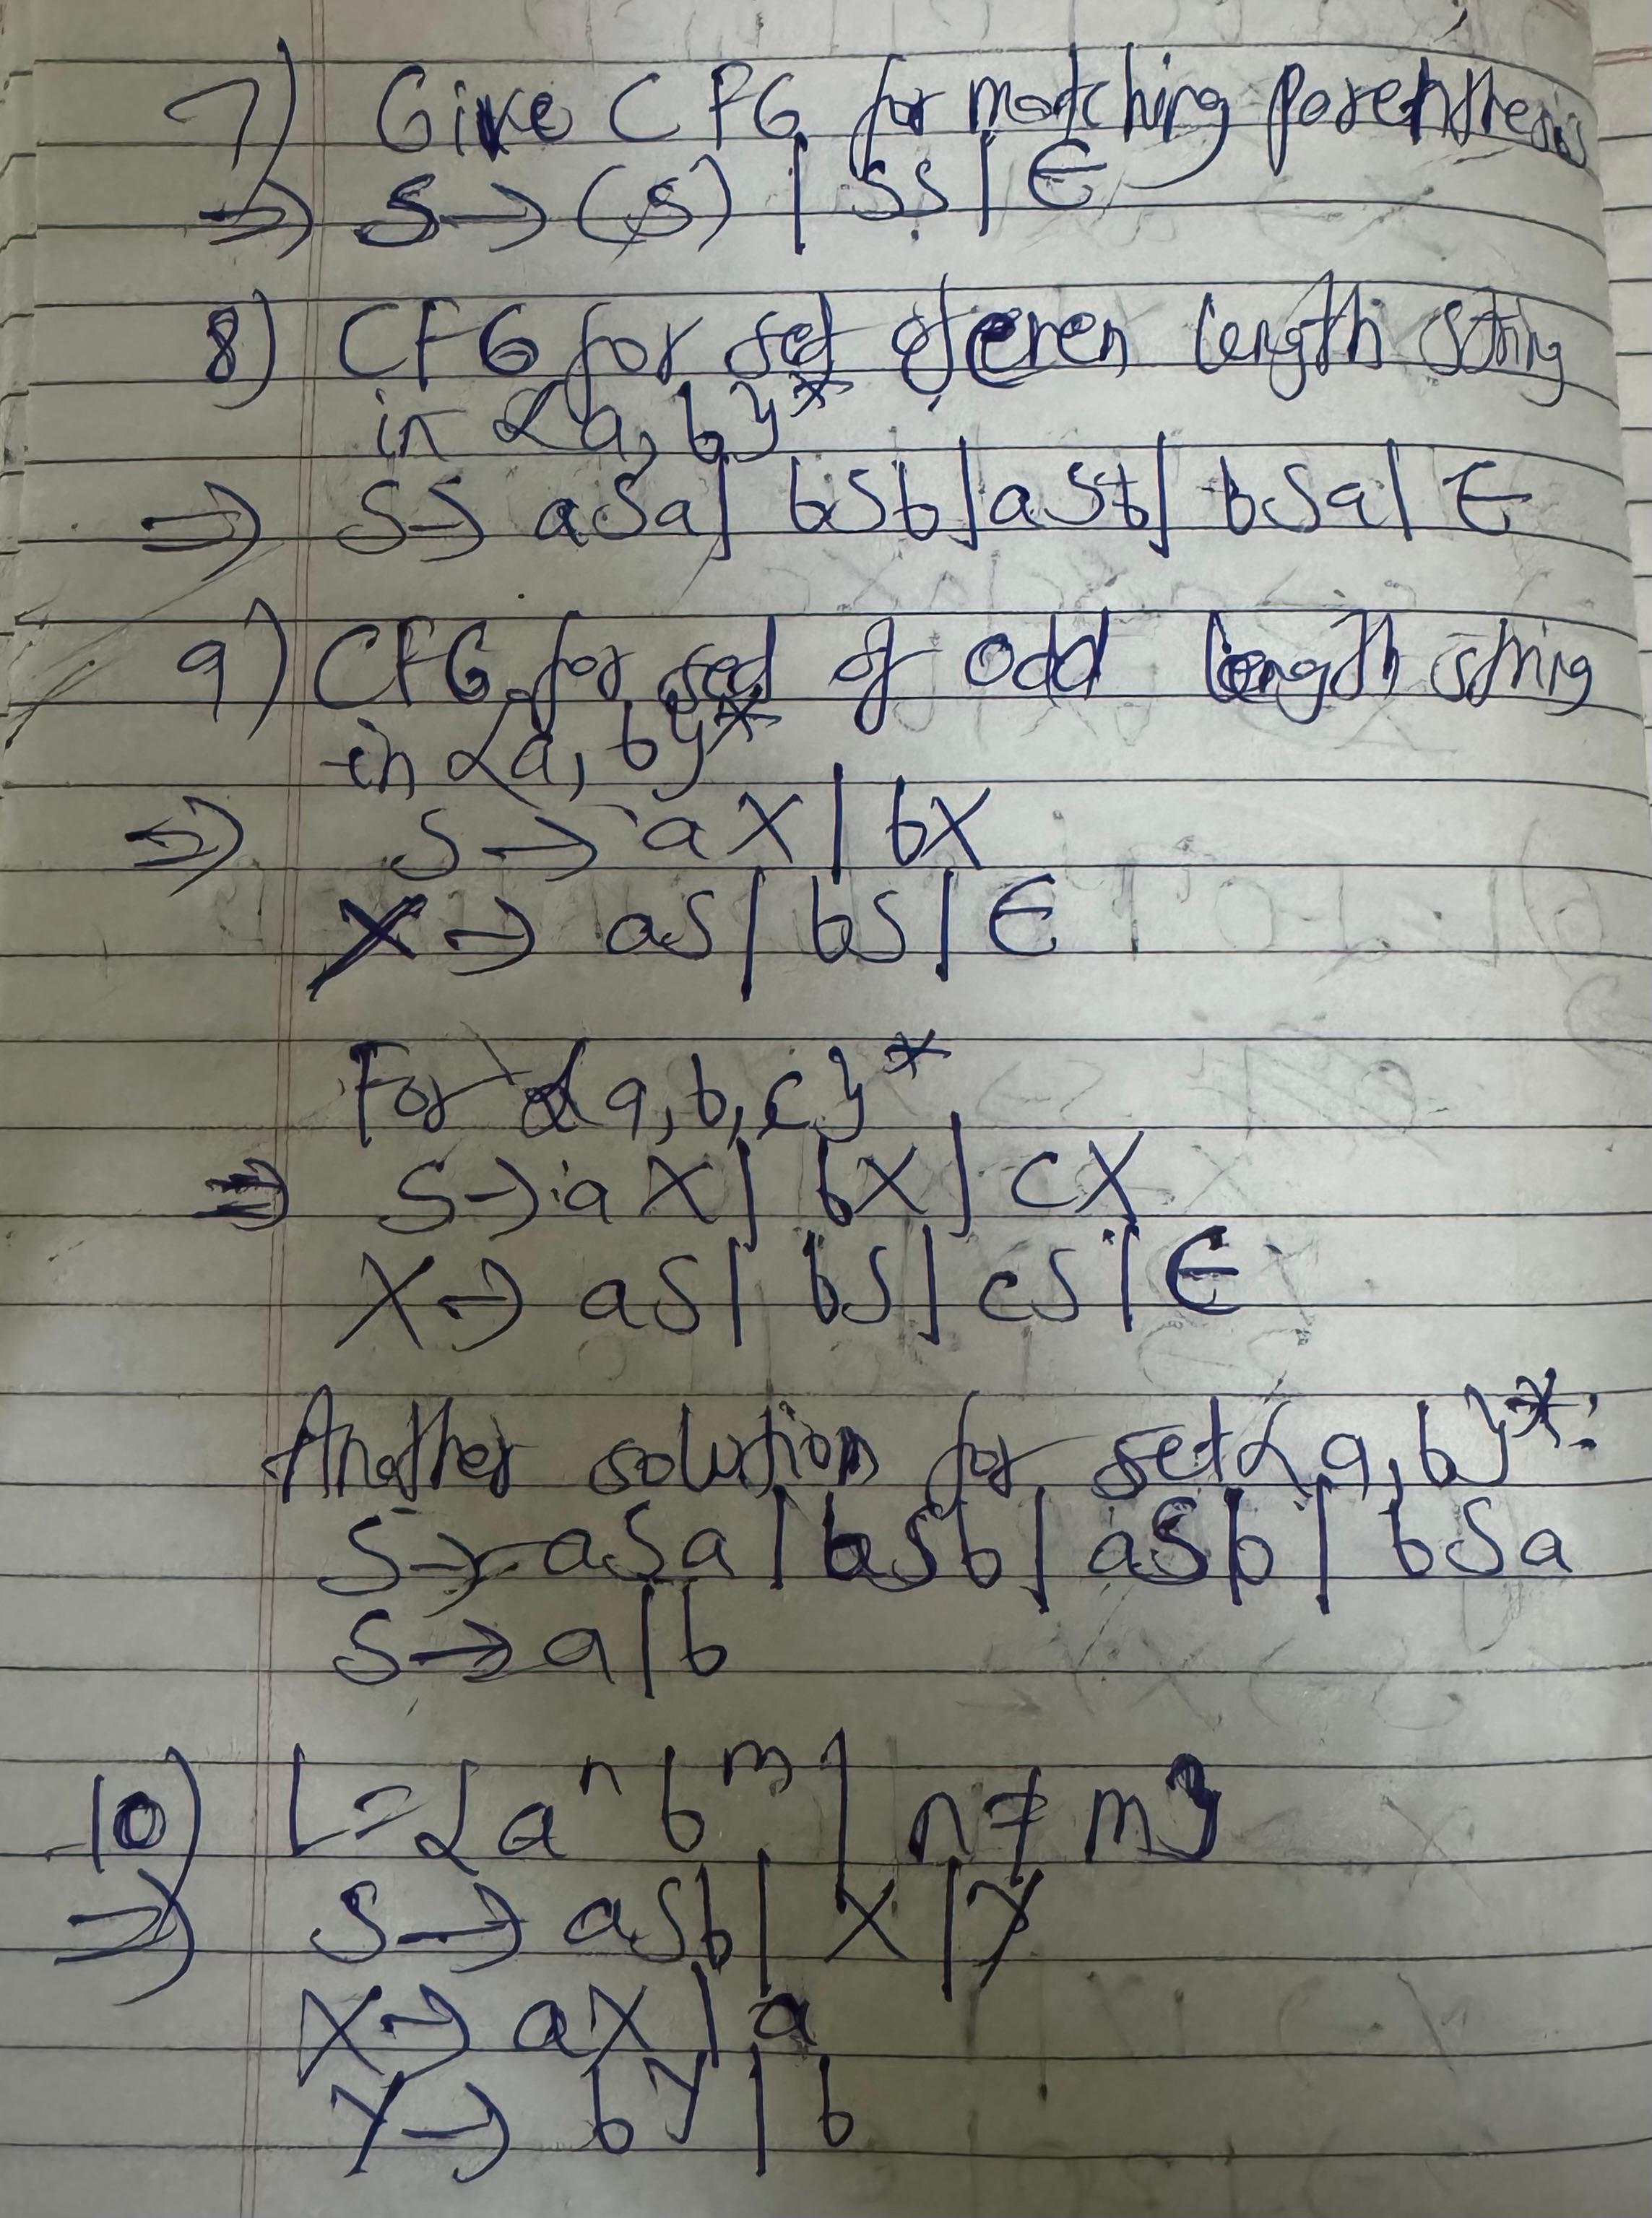 7) Give CFG for matching parenthesis
⇒ S → (S) | SS | ∈
8) CFG for set of even length string
in {a, b}*
⇒ S → aSa | bSb | aSb | bSa | ∈
9) CFG for set of odd length string
in {a, b}*
⇒ S → aX | bX
X → aS | bS | ∈
For {a, b, c}*
⇒ S → aX | bX | cX
X → aS | bS | cS | ∈
Another solution for set {a, b}*:
S → aSa | bSb | aSb | bSa
S → a | b
10) L = {aⁿ bᵐ | n ≠ m}
⇒ S → aSb | X | Y
X → aX | a
Y → bY | b